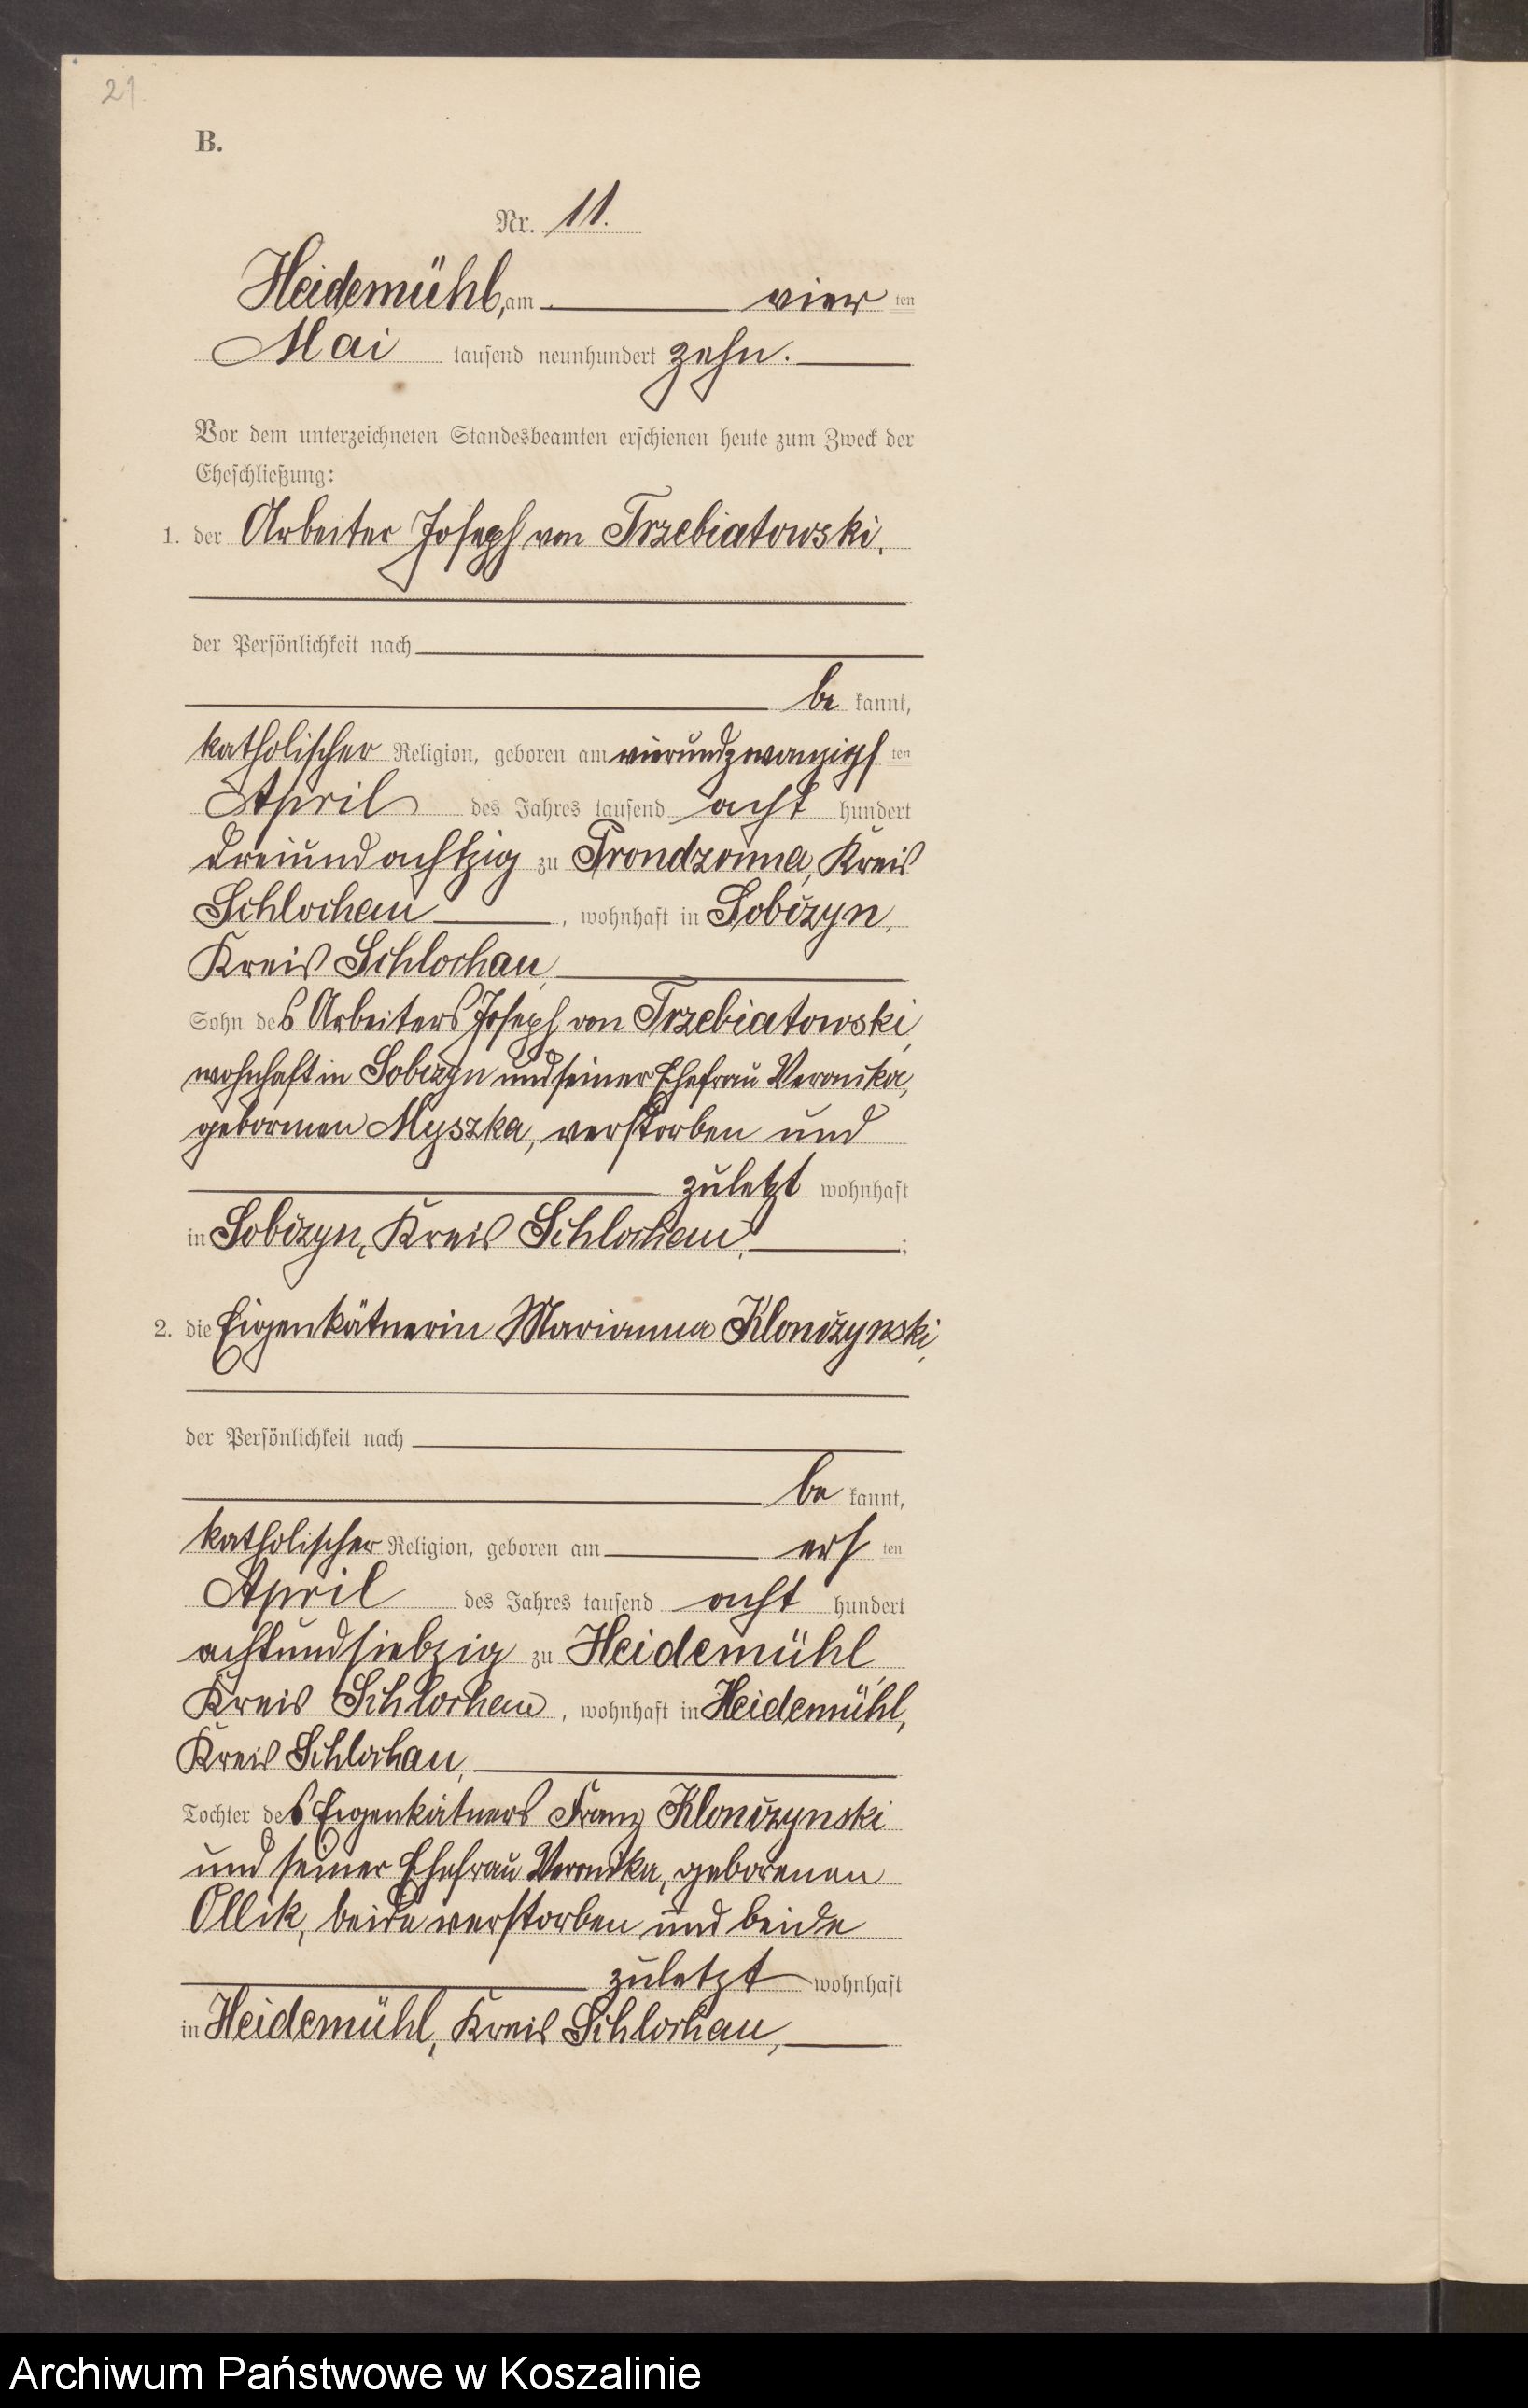 21
B.
Nr. 11.
Heidemühl, am vier ten
Mai tausend neunhundert zehn.
Vor dem unterzeichneten Standesbeamten erschienen heute zum Zweck der
Eheschließung:
1. der Arbeiter Joseph von Trzebiatowski,
der Persönlichkeit nach
be kannt,
katholischer Religion, geboren am vierundzwanzigs ten
April des Jahres tausend acht hundert
dreiundachtzig zu Prondzonna, Kreis
Schlochau, wohnhaft in Sobczyn,
Kreis Schlochau,
Sohn des Arbeiters Joseph von Trzebiatowski,
wohnhaft in Sobczyn und seiner Ehefrau Veronika,
geborenen Myszka, verstorben und
zuletzt wohnhaft
in Sobczyn, Kreis Schlochau,;
2. die Eigenkätnerin Marianna Klonczynski,
der Persönlichkeit nach
be kannt,
katholischer Religion, geboren am ers ten
April des Jahres tausend acht hundert
achtundsiebzig zu Heidemühl,
Kreis Schlochau, wohnhaft in Heidemühl,
Kreis Schlochau,
Tochter des Eigenkätners Franz Klonczynski
und seiner Ehefrau Veronika, geborenen
Ollik, beide verstorben und beide
zuletzt wohnhaft
in Heidemühl, Kreis Schlochau,
Archiwum Państwowe w Koszalinie